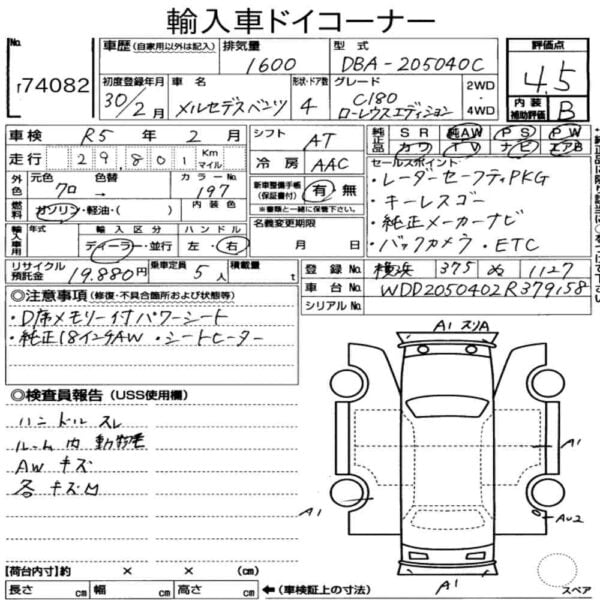 輸入車ドイコーナー
No. 車歴 (自家用以外は記入) 排気量 型式 評価点
r74082 1600 DBA-205040C 4.5
初度登録年月 車名 形状・ドア数 グレード 2WD・4WD 内装補助評価 B
30/2月 メルセデスベンツ 4 C180 ローレウスエディション
車検 R5年 2月 シフト AT 純正品 SR 純AW PS PW
走行 29,801 Km マイル 冷房 AAC カワ TV ナビ エアB
外色 元色 クロ 色替 → カラーNo. 197 新車整備手帳(保証書付) 有 無 セールスポイント
燃料 ガソリン・軽油・( ) 内装色 ※書類と一緒に保管下さい。
・レーダーセーフティPKG
・キーレスゴー
・純正メーカーナビ
・バックカメラ・ETC
輸入車用 年式 輸入区分 ハンドル 名義変更期限
ディーラー・並行 左・右 月 日
リサイクル預託金 19,880円 乗車定員 5人 積載量 t 登録No. 横浜 375 ぬ 1127
車台No. WDD2050402R379158
シリアルNo.
◎注意事項 (修復・不具合箇所および状態等)
・D席メモリー付パワーシート
・純正18インチAW ・シートヒーター
◎検査員報告 (USS使用欄)
ハンドルスレ
ルーム内動物毛
AWキズ
各キズM
A1 スリA
A1
A1
AU2
A1
【荷台内寸】約 × × (cm)
長さ cm 幅 cm 高さ cm ←(車検証上の寸法)
スペア